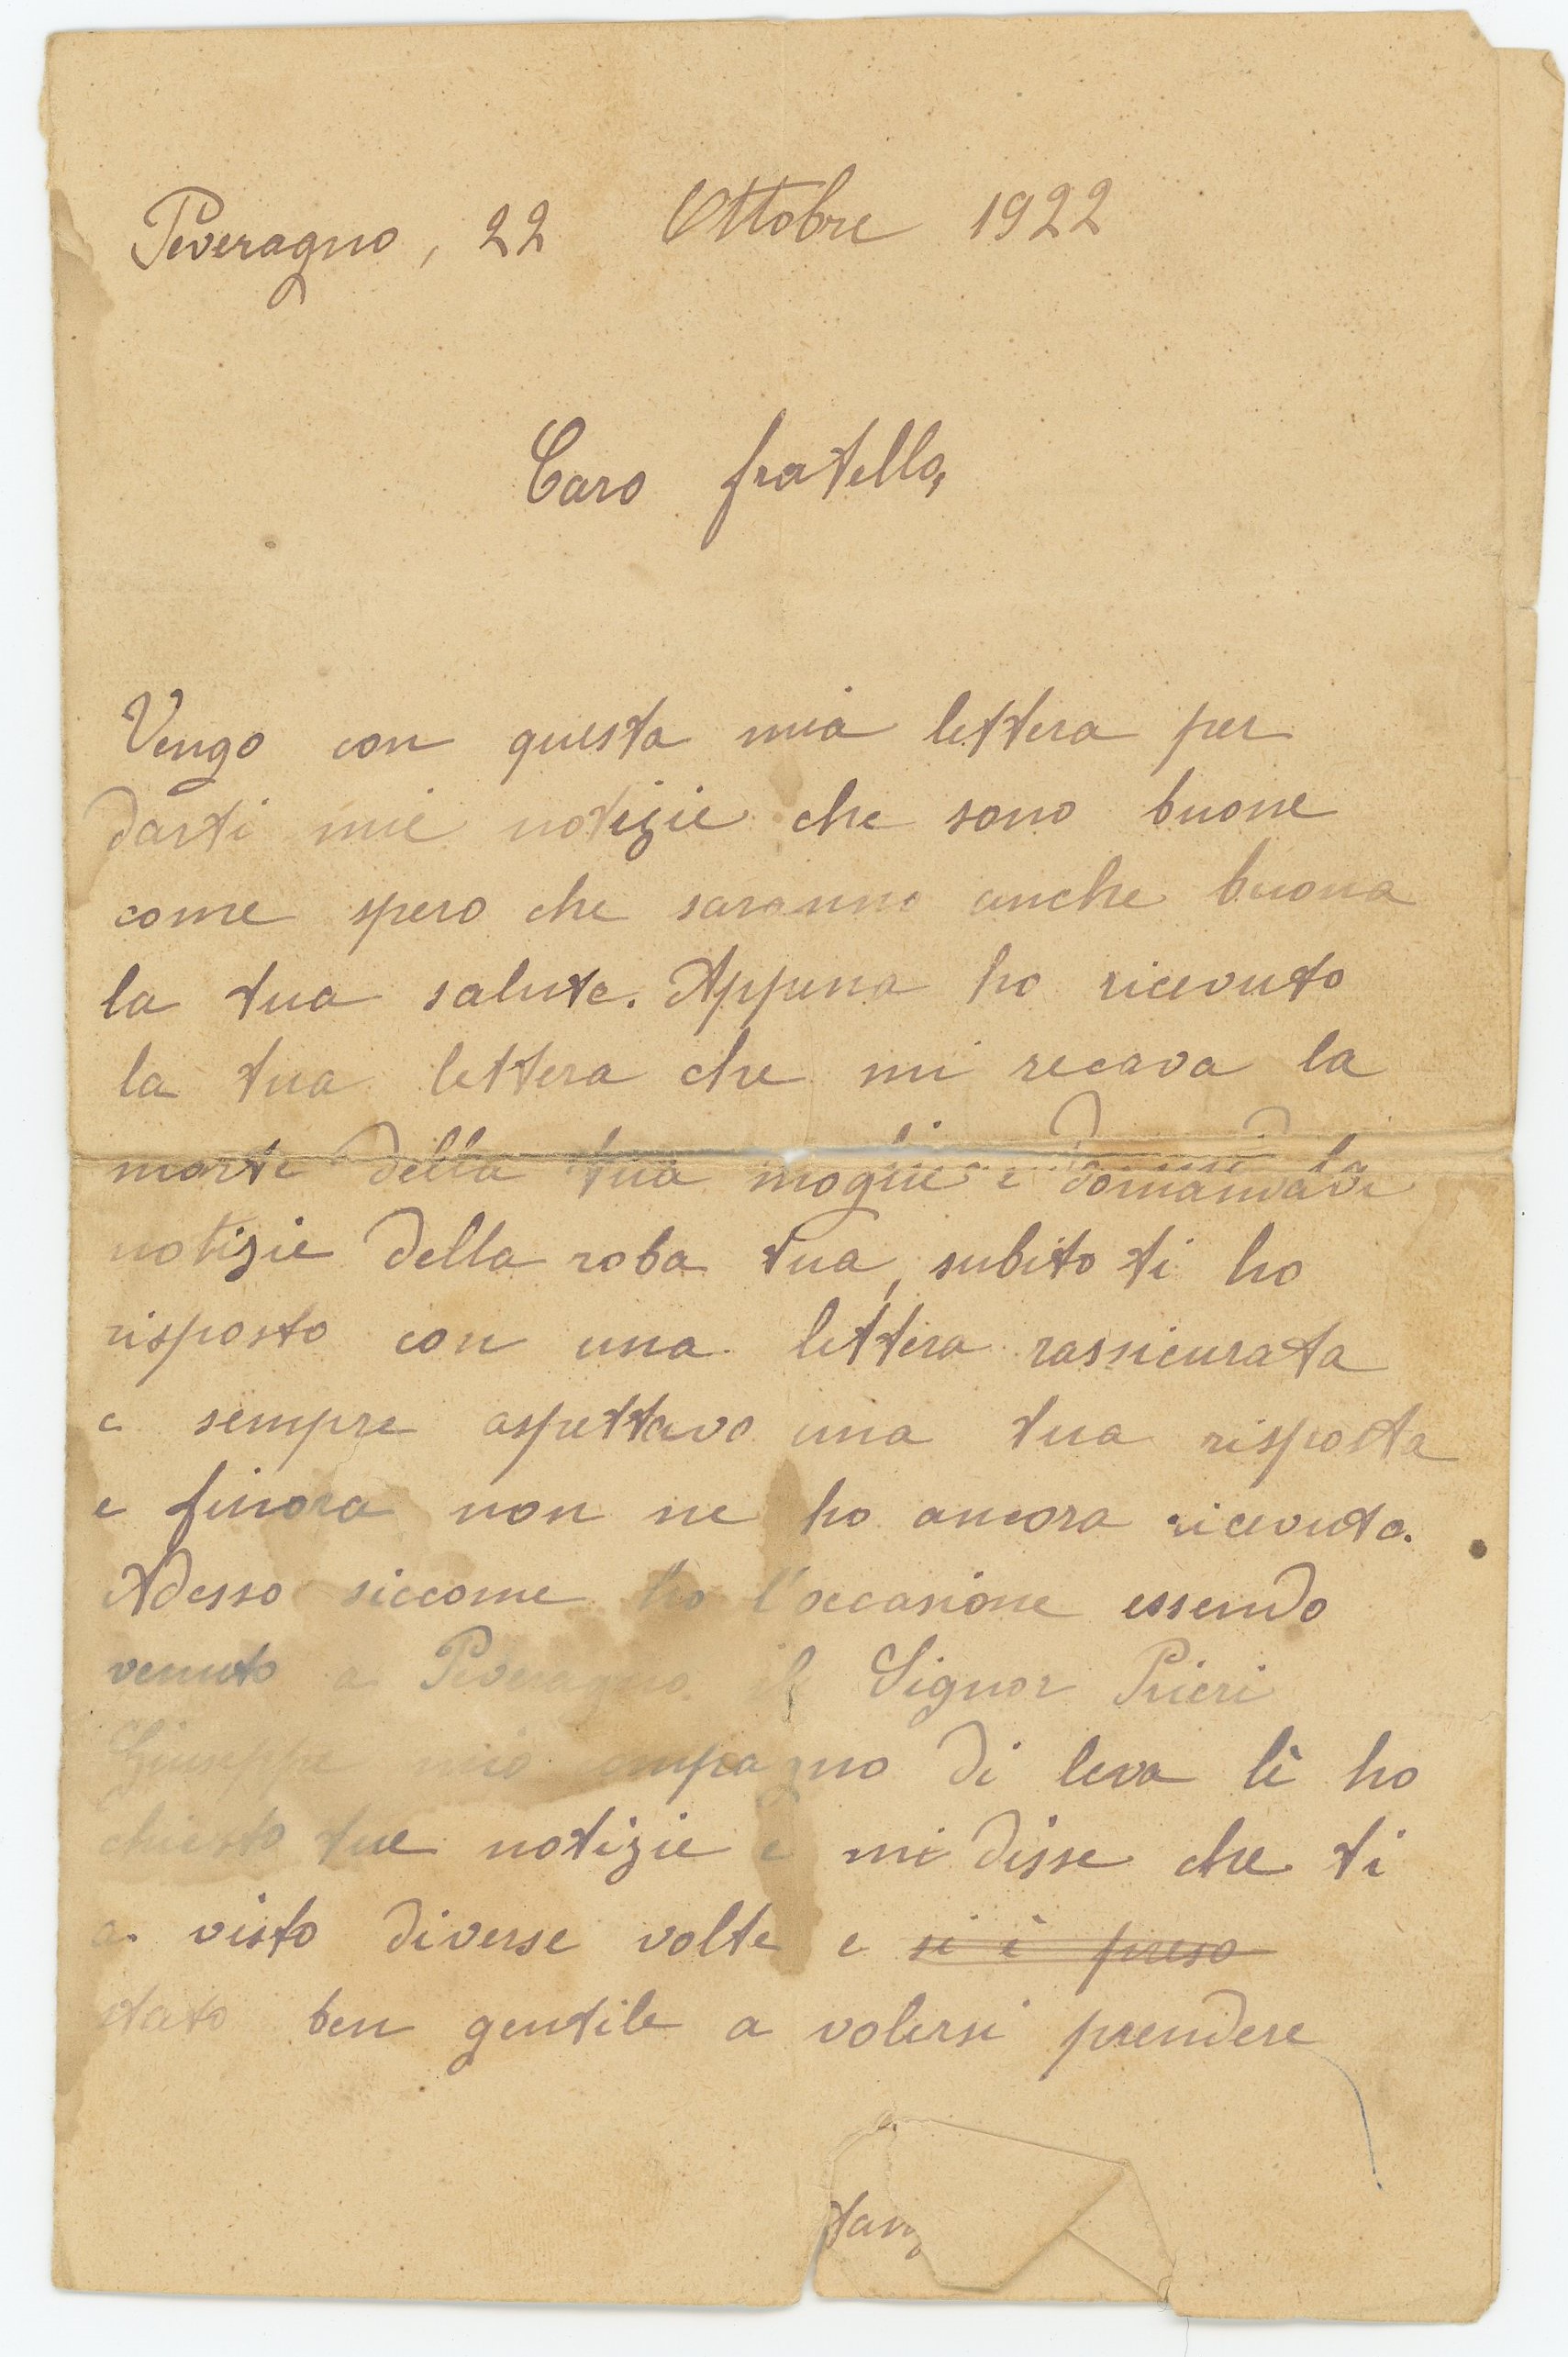 Peveragno, 22 Ottobre 1922
Caro fratello,
Vengo con questa mia lettera per
darti mie notizie che sono buone
come spero che saranno anche buona
la tua salute. Appena ho ricevuto
la tua lettera che mi recava la
morte della tua moglie e domandavi
notizie della roba tua, subito ti ho
risposto con una lettera rassicurata
e sempre aspettavo una tua risposta
e finora non ne ho ancora ricevuto.
Adesso siccome ho l'occasione essendo
venuto a Peveragno il Signor Prieri
Giuseppe mio compagno di leva lì ho
chiesto tue notizie e mi disse che ti
a visto diverse volte e si è preso
stato ben gentile a volersi prendere